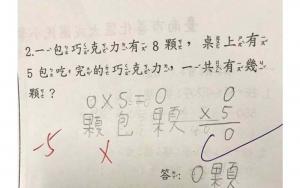 2.一包巧克力有8顆,桌上有
5包吃完的巧克力,一共有幾
顆?
0×5=0 0
顆 包 顆 ×5
0
-5
答:0顆